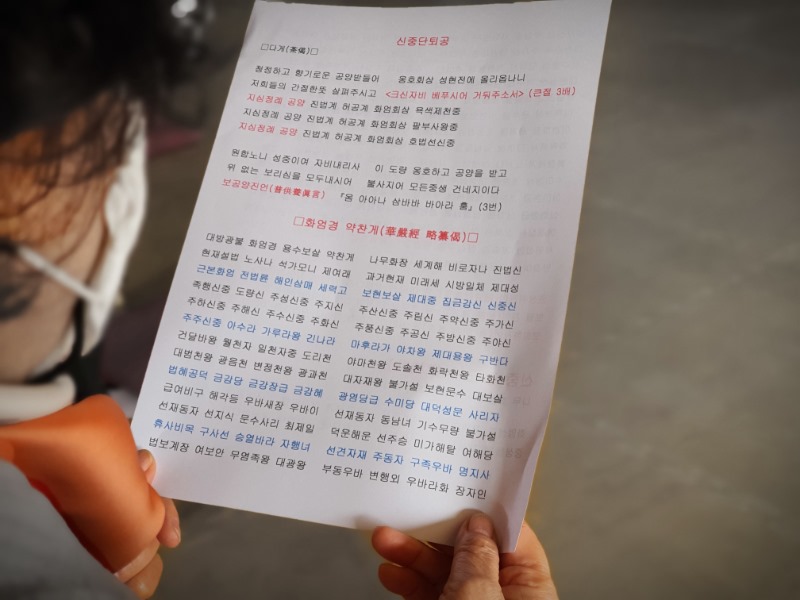 신중단퇴공
□다게(茶偈)□
청정하고 향기로운 공양받들어 옹호회상 성현전에 올리옵나니
저희들의 간절한뜻 살펴주시고 <크신자비 베푸시어 거둬주소서> (큰절 3배)
지심정례 공양 진법계 허공계 화엄회상 욕색제천중
지심정례 공양 진법계 허공계 화엄회상 팔부사왕중
지심정례 공양 진법계 허공계 화엄회상 호법선신중
원합노니 성중이여 자비내리사 이 도량 옹호하고 공양을 받고
위 없는 보리심을 모두내시어 불사지어 모든중생 건네지이다
보공양진언(普供養眞言) 『옴 아아나 삼바바 바아라 훔』(3번)
□화엄경 약찬게(華嚴經 略纂偈)□
대방광불 화엄경 용수보살 약찬게 나무화장 세계해 비로자나 진법신
현재설법 노사나 석가모니 제여래 과거현재 미래세 시방일체 제대성
근본화엄 전법륜 해인삼매 세력고 보현보살 제대중 집금강신 신중신
족행신중 도량신 주성신중 주지신 주산신중 주림신 주약신중 주가신
주하신중 주해신 주수신중 주화신 주풍신중 주공신 주방신중 주야신
주주신중 아수라 가루라왕 긴나라 마후라가 야차왕 제대용왕 구반다
건달바왕 월천자 일천자중 도리천 야마천왕 도솔천 화락천왕 타화천
대범천왕 광음천 변정천왕 광과천 대자재왕 불가설 보현문수 대보살
법혜공덕 금강당 금강장급 금강혜 광염당급 수미당 대덕성문 사리자
급여비구 해각등 우바새장 우바이 선재동자 동남녀 기수무량 불가설
선재동자 선지식 문수사리 최제일 덕운해운 선주승 미가해탈 여해당
휴사비목 구사선 승열바라 자행녀 선견자재 주동자 구족우바 명지사
법보계장 여보안 무염족왕 대광왕 부동우바 변행외 우바라화 장자인